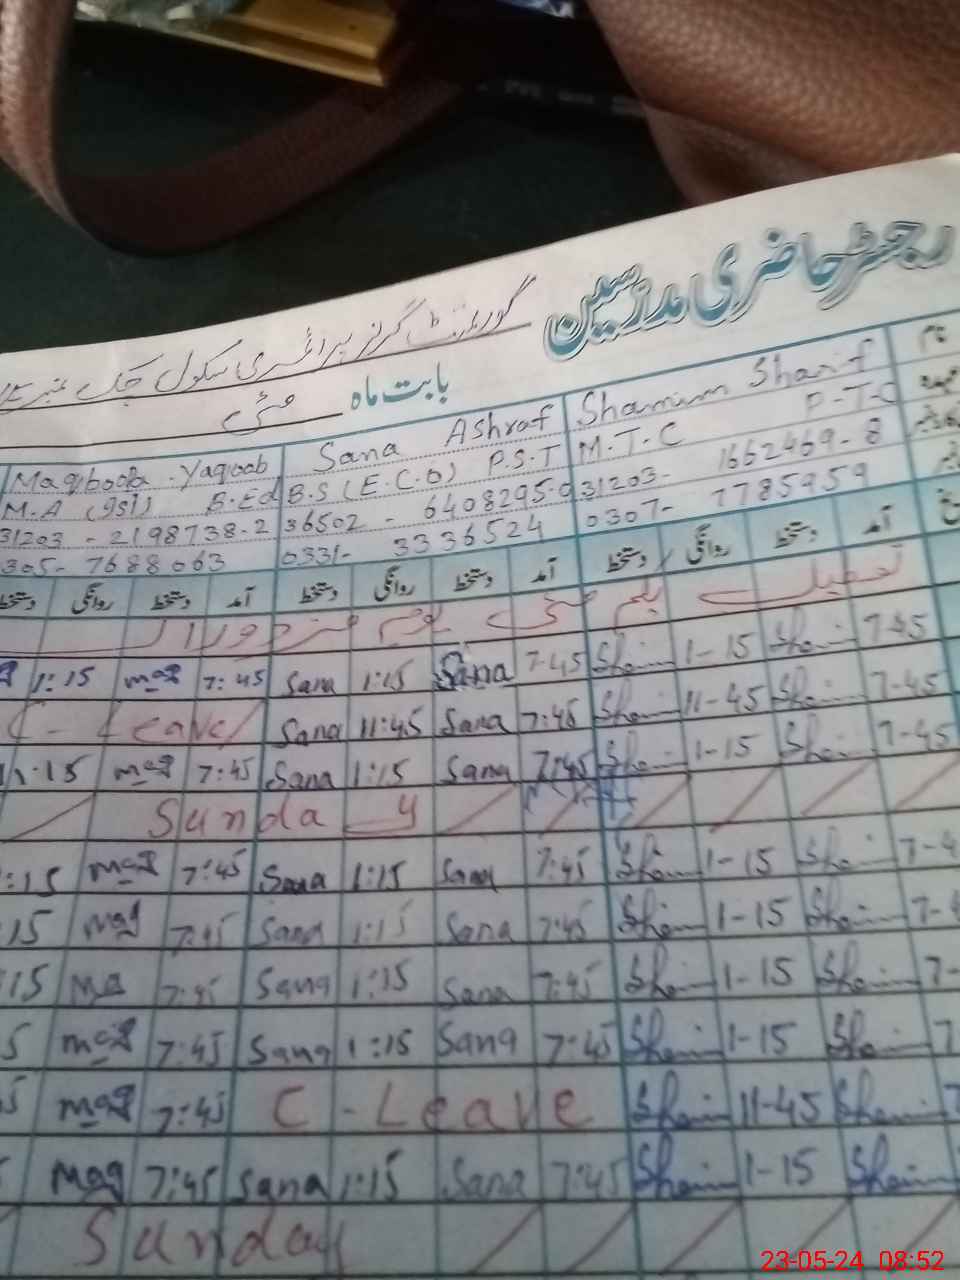 رجسٹر حاضری مدرسین
گورنمنٹ گرلز پرائمری سکول چک نمبر
بابت ماہ مئی
نام
Shamim Sharif Sana Ashraf Maqboola Yaqoob
عہدہ
M.T.C P-T-C B.S (E.C.O) P.S.T M.A B.Ed
31203- 1662469-8 36502 - 6408295-0 31203 - 2198738-2
0307- 7785959 0331- 3336524 305- 7688063
آمد دستخط روانگی دستخط آمد دستخط روانگی دستخط آمد دستخط روانگی دستخط
تعطیل یکم مئی یوم مزدوراں
1:15 maq 7:45 Sana 1:15 Sana 7-45 Sham 1-15 Sham 7-45
C - Leave Sana 11:45 Sana 7:45 Sham 11-45 Sham 7-45
1:15 maq 7:45 Sana 1:15 Sana 7:45 Sham 1-15 Sham 7-45
Sunday
:15 maq 7:45 Sana 1:15 Sana 7:45 Sham 1-15 Sham 7-4
15 maq 7:45 Sana 1:15 Sana 7:45 Sham 1-15 Sham 7-4
15 ma 7:45 Sana 1:15 Sana 7:45 Sham 1-15 Sham 7-
5 maq 7:45 Sana 1:15 Sana 7:45 Sham 1-15 Sham 7
5 maq 7:45 C - Leave Sham 11-45 Sham 7
maq 7:45 Sana 1:15 Sana 7:45 Sham 1-15 Sham
Sunday
23-05-24 08:52